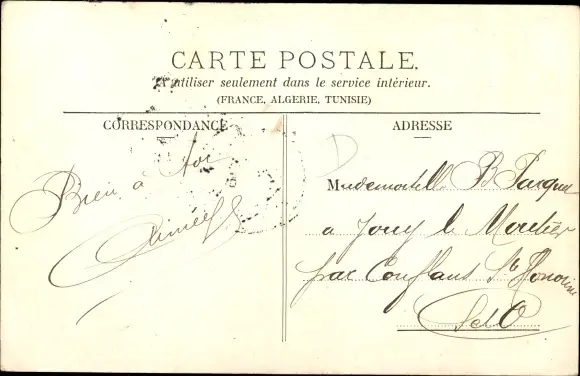 CARTE POSTALE.
A utiliser seulement dans le service intérieur.
(FRANCE, ALGERIE, TUNISIE)
CORRESPONDANCE
Bien à toi
Aimée
ADRESSE
D
Mademoiselle B
a Jouy le Moutier
par Conflans Ste Honorine
S et O